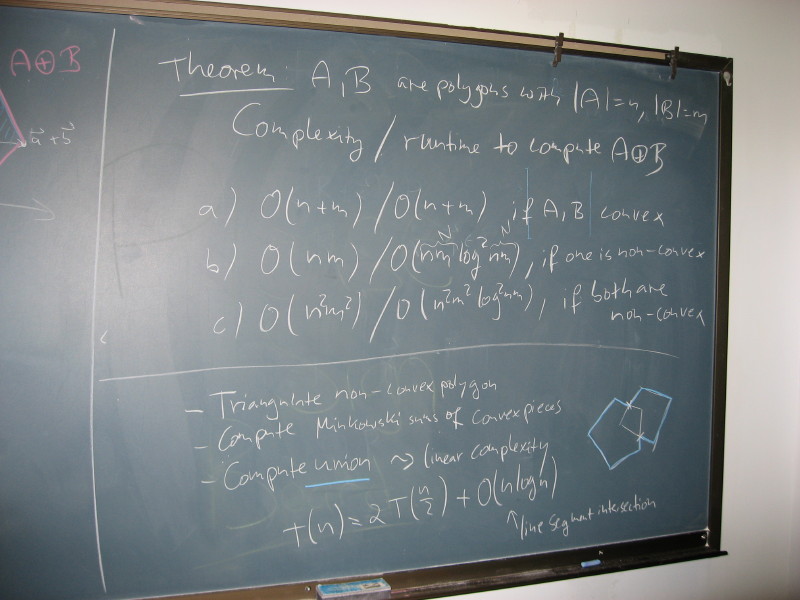 A⊕B
a⃗+b⃗
Theorem: A,B are polygons with |A|=n, |B|=m
Complexity / runtime to compute A⊕B
a) O(n+m) / O(n+m), if A,B convex
N N
b) O(nm) / O(nm log² nm), if one is non-convex
c) O(n²m²) / O(n²m² log² nm), if both are
non-convex
- Triangulate non-convex polygon
- Compute Minkowski sums of convex pieces
- Compute union ⇝ linear complexity
T(n) = 2T(n/2) + O(n log n)
↑ line segment intersection